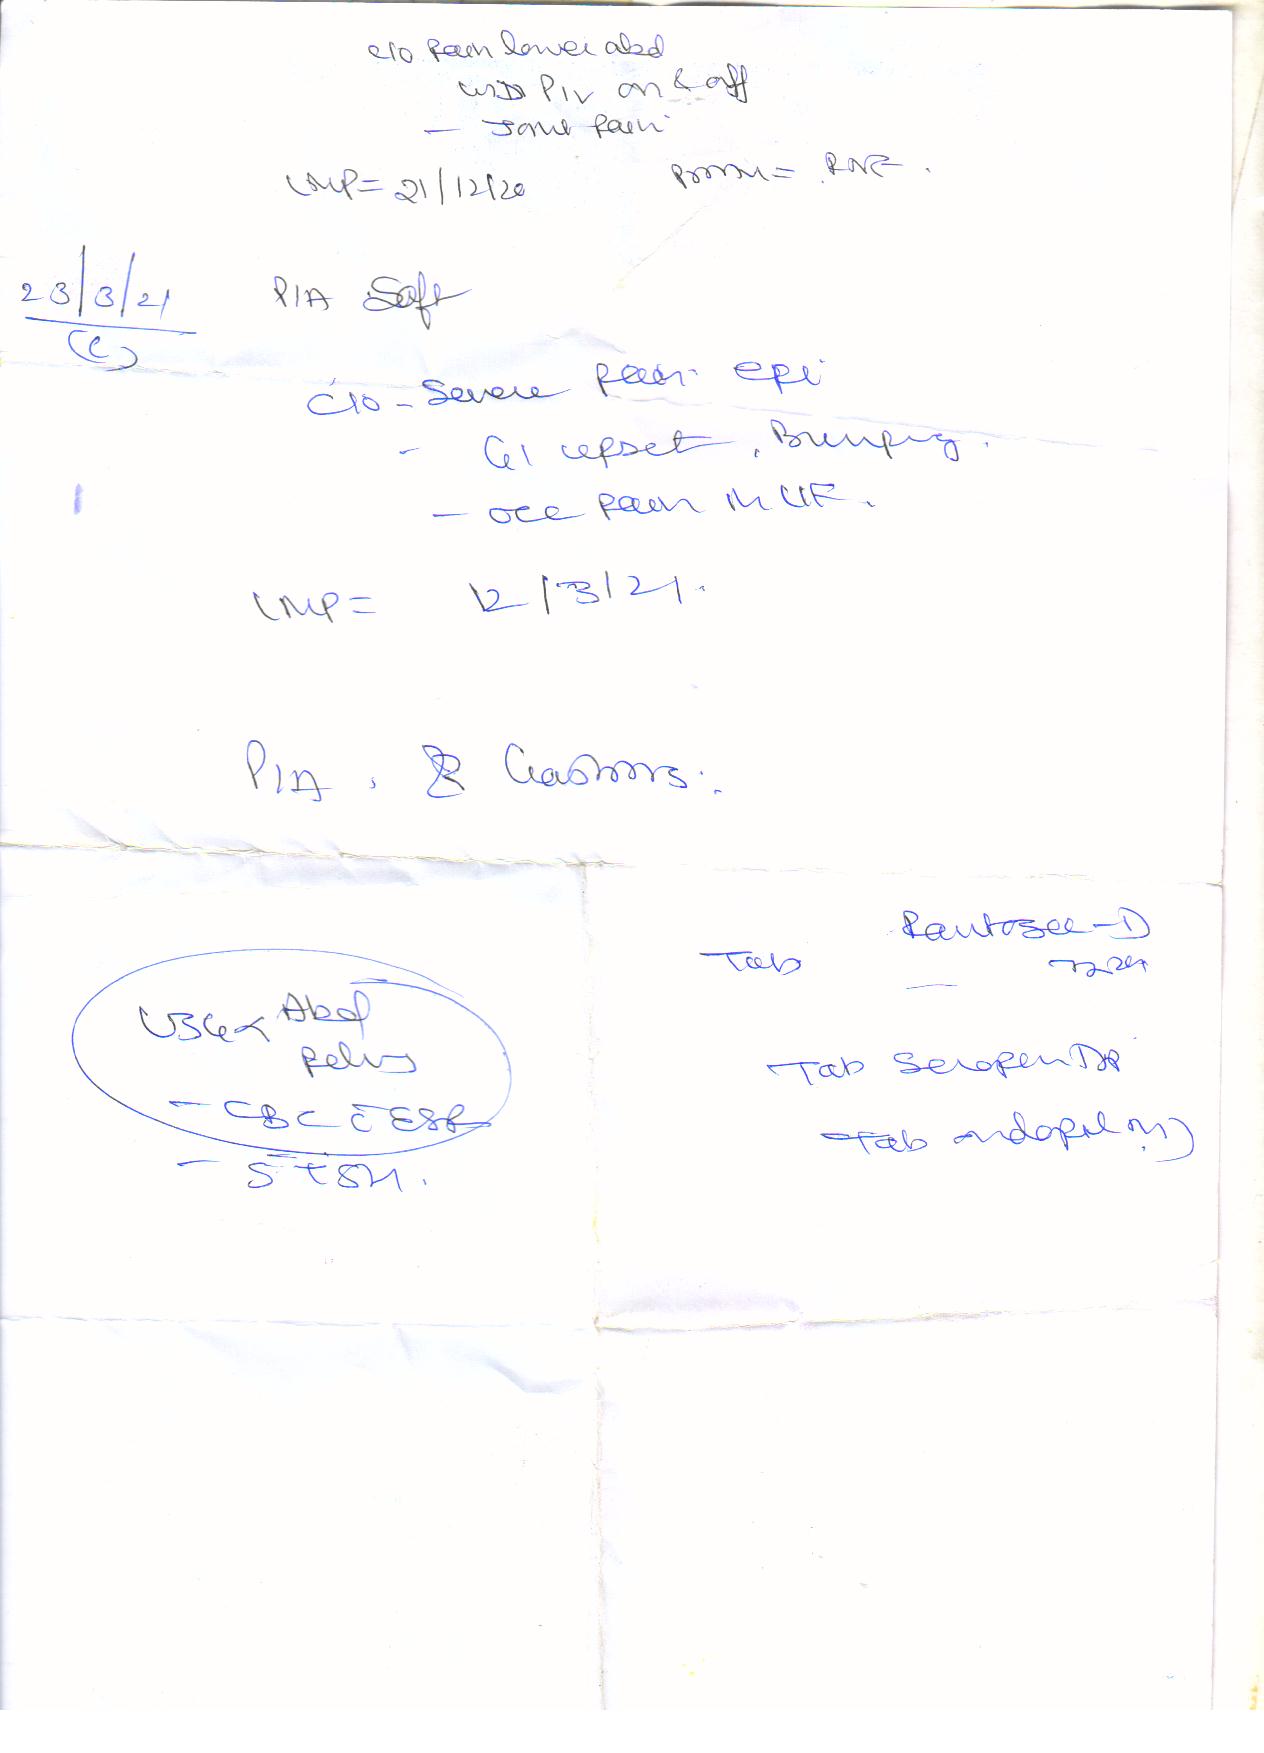 c/o Pain lower abd
WD P/V on & off
- Joint Pain
LMP = 21/12/20
23/3/21
(C)
P/A Soft
C/o - Severe pain epi
- GI upset, Burping.
- occ pain in
LMP = 12/3/21.
P/A,
USG < Abd
Pelvis
- CBC c̄ ESR
- S TSH.
Tab Pantozee-D
Tab Seropen DP
Tab